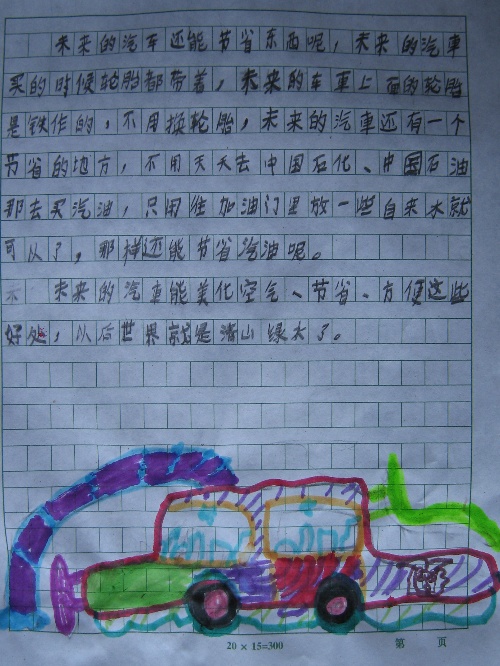 未来的汽车还能节省东西呢，未来的汽車
买的时候轮胎都带着，未来的车車上面的轮胎
是铁作的，不用换轮胎，未来的汽車还有一个
节省的地方，不用天天去中国石化、中国石油
那去买汽油，只用往加油门里放一些自来水就
可以了，那样还能节省汽油呢。
未来的汽車能美化空气、节省、方便这些
好处，以后世界就是清山绿水了。
20 × 15=300
第 页